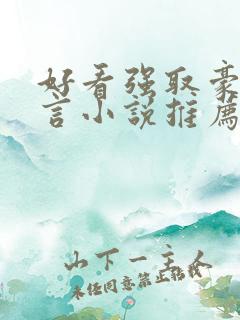 好看强取豪
言小说推薦
山下一主人
未经同意禁止转载